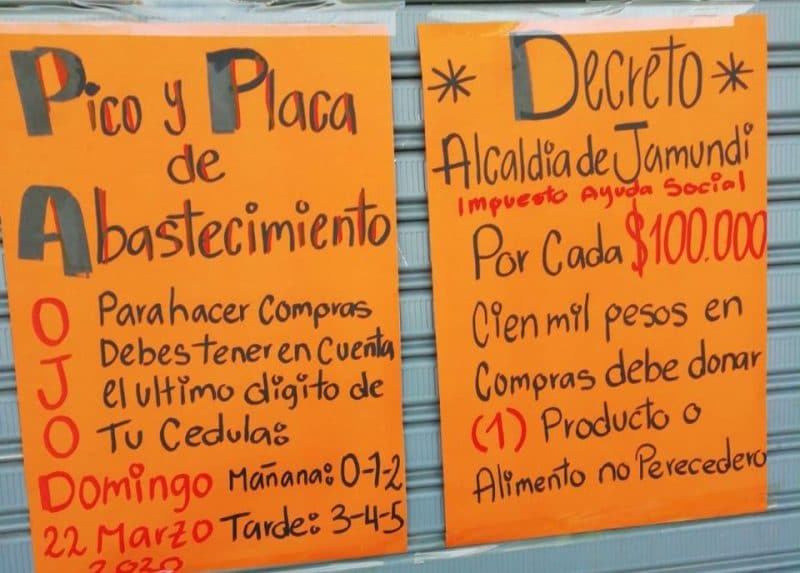 Pico y Placa
de
Abastecimiento
OJO
Para hacer Compras
Debes tener en Cuenta
el ultimo digito de
Tu Cedula:
Domingo Mañana: 0-1-2
22 Marzo Tarde: 3-4-5
2020
* Decreto *
Alcaldia de Jamundi
Impuesto Ayuda Social
Por Cada $100.000
Cien mil pesos en
Compras debe donar
(1) Producto o
Alimento no Perecedero